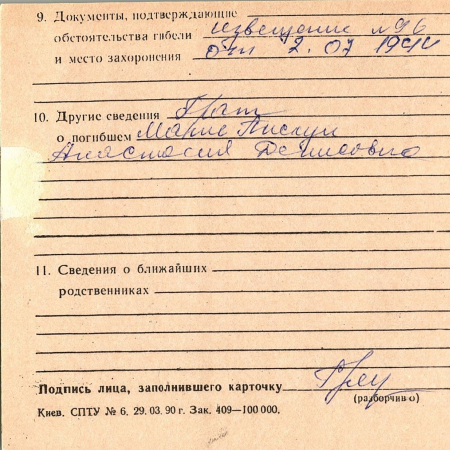 9. Документы, подтверждающие
обстоятельства гибели извещение №96
и место захоронения от 2.07 1944
10. Другие сведения Брат
о погибшем Марие
Анастасия Денисовна
11. Сведения о ближайших
родственниках
Подпись лица, заполнившего карточку
(разборчиво)
Киев. СПТУ № 6, 29.03.90 г. Зак. 409—100 000.